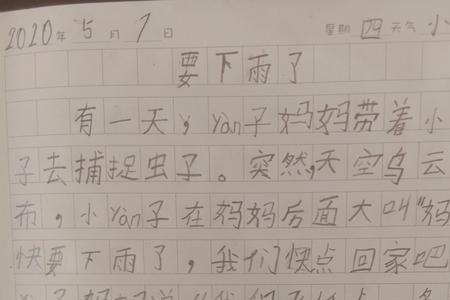 2020年5月7日 星期四 天气小
要下雨了
有一天，yàn子妈妈带着小
子去捕捉虫子。突然，天空乌云
布，小yàn子在妈妈后面大叫“妈
快要下雨了，我们快点回家吧